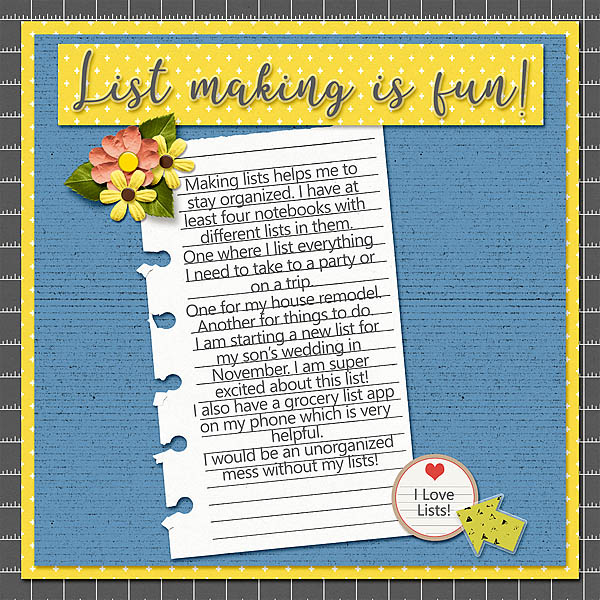 List making is fun!
Making lists helps me to
stay organized. I have at
least four notebooks with
different lists in them.
One where I list everything
I need to take to a party or
on a trip.
One for my house remodel.
Another for things to do.
I am starting a new list for
my son's wedding in
November. I am super
excited about this list!
I also have a grocery list app
on my phone which is very
helpful.
I would be an unorganized
mess without my lists!
I Love
Lists!